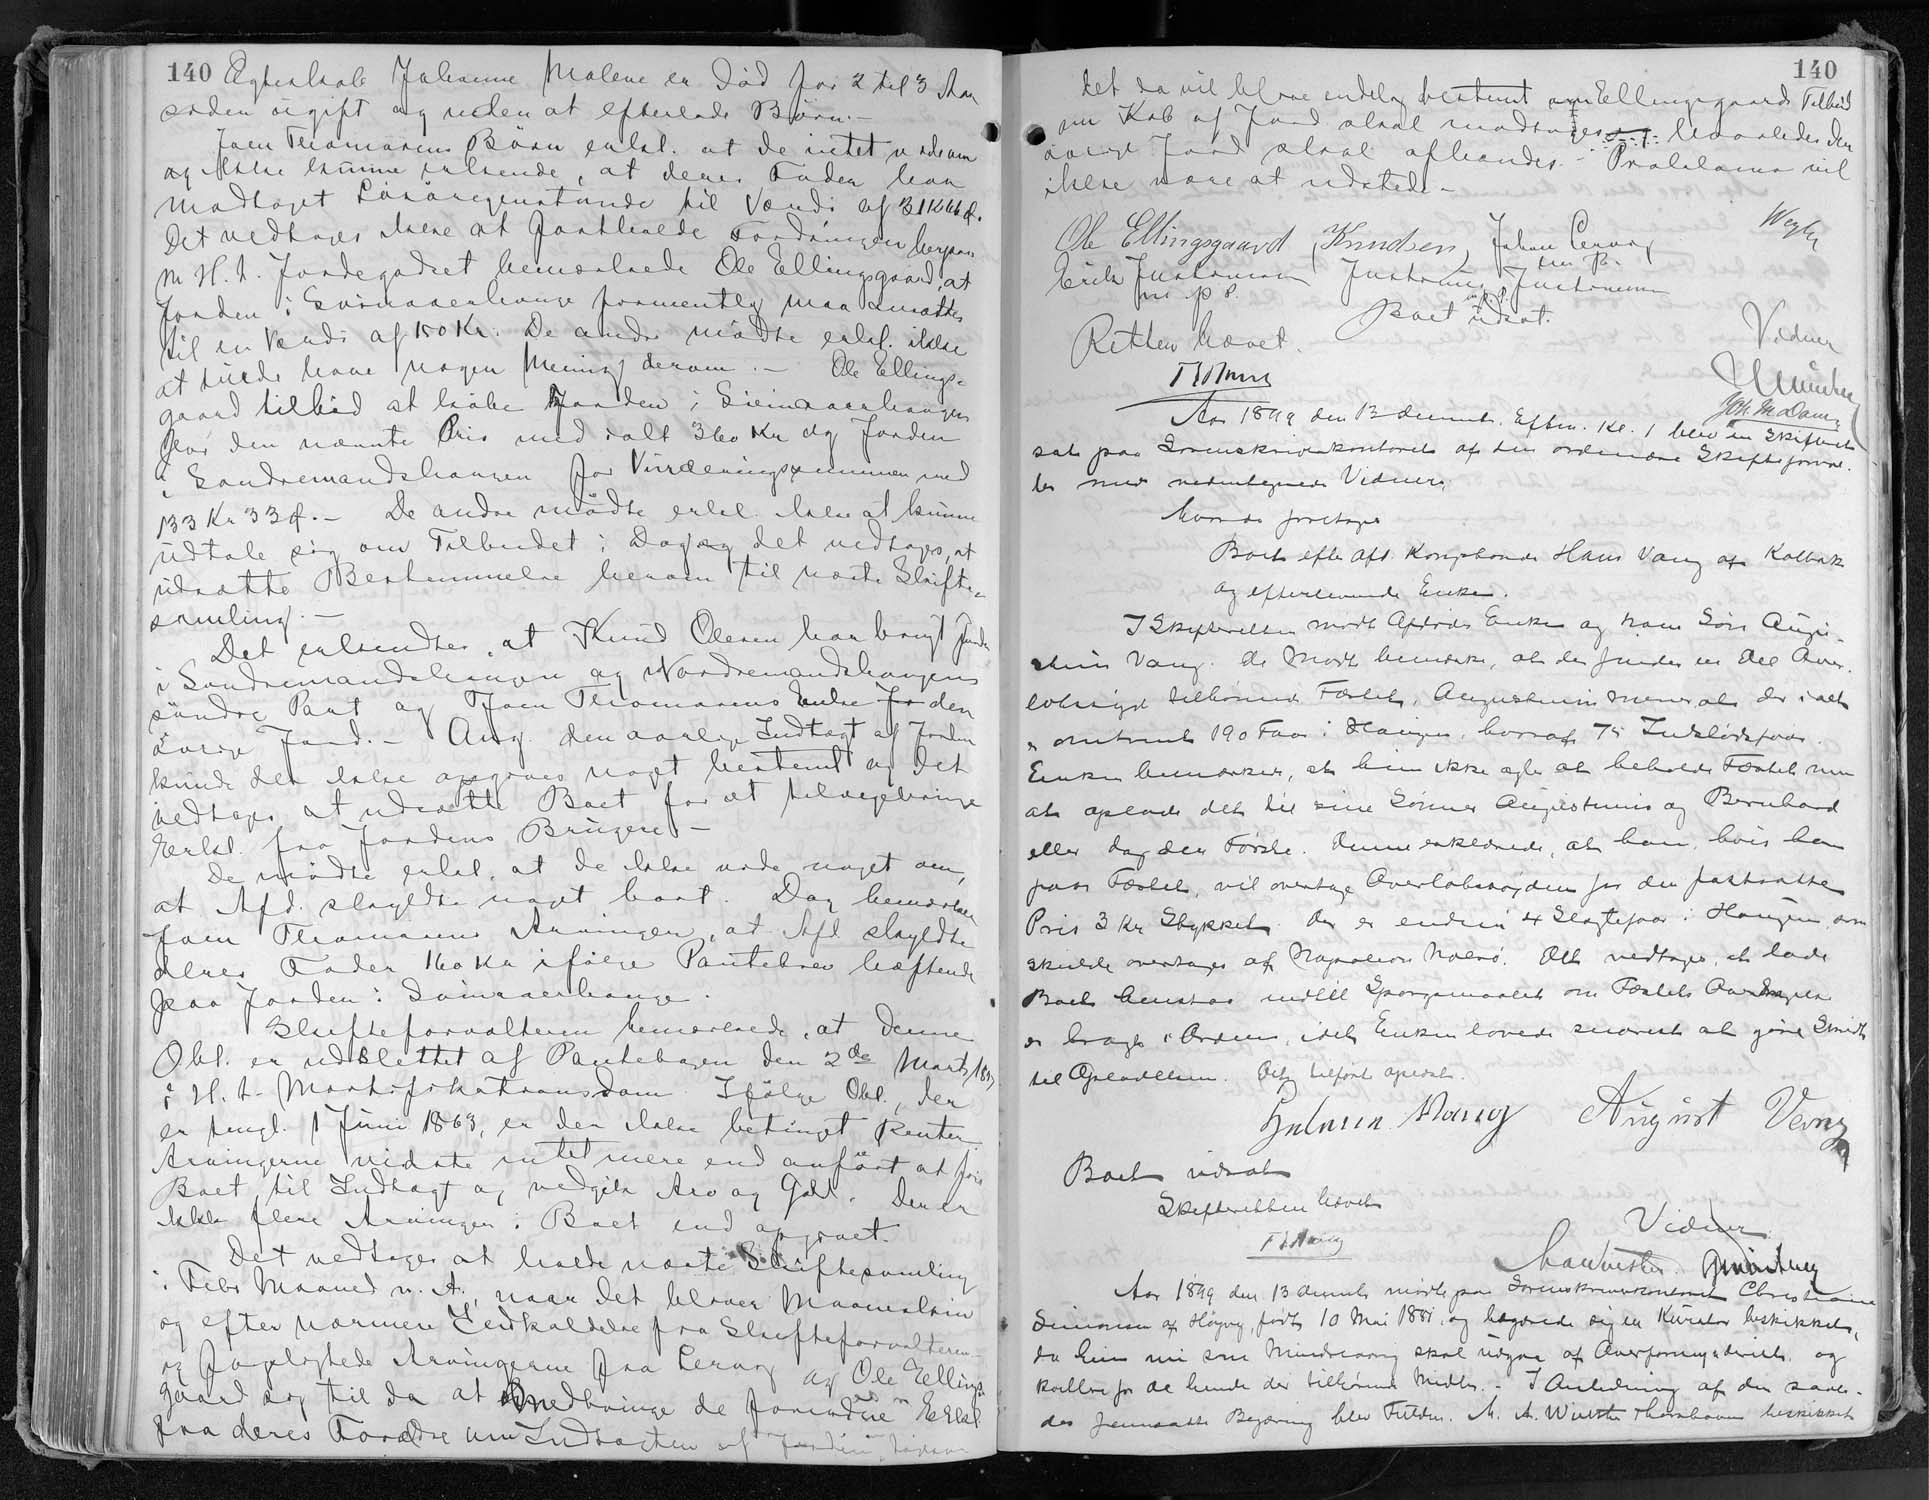 140
Ægteskab Johanne Malene er død for 2 til 3 Aar
siden ugift og uden at efterlade Børn.-
Joen Thomasens Børn erkl. at de intet vidste om
og ikke kunne erkende, at deres Fader har
modtaget Løsøregenstande til Værdi af 31 K 66 Ø.
Det vedtages ikke at fastholde Fordringen
M. H. t. Jordegodset bemærkede Ole Ellingsgaard, at
Jorden i formentlig maa ansættes
til en Værdi af 180 Kr. De andre mødte erkl. ikke
at turde have nogen Mening derom.- Ole Ellings-
gaard tilbød at købe Jorden i
for den nævnte Pris med ialt 360 Kr og Jorden
i Sondremandshaugen for Vurderingssummen med
133 Kr 33 Ø.- De andre mødte erkl. ikke at kunne
udtale sig om Tilbudet i Dag og det vedtages, at
udsætte Bestemmelse herom til næste Skifte-
samling.-
Det erkendtes, at Knud Olesen har brugt Jorden
i Sondremandshaugen og Nordremandshaugens
søndre Part og Joen Thomasens Enke den
øvrige Jord.- Ang. den aarlige Indtægt af Jorden
kunde der ikke opgives noget bestemt og det
vedtages at udsætte Boet for at tilvejebringe
Erkl. fra Jordens Brugere.-
De mødte erkl. at de ikke vide noget om,
at Afd. skyldte noget bort. Dog bemærker
Joen Thomasens Arvinger, at Afd. skyldte
deres Fader 160 Kr ifølge Pantebrev hæftende
paa Jorden i
Skifteforvalteren bemærkede, at denne
Obl. er udslettet af Pantebogen den 2de Marts
i H. t. Ifølge Obl., der
er tingl. 1 Juni 1863, er der ikke betinget Renter
Arvingerne vidste intet mere end anført at føre
Boet til Indtægt og vedgik Arv og Gæld. Der er
ikke flere Arvinger i Boet end opgivet.
Det vedtages at holde næste Skiftesamling
i Febr Maaned n. A., naar det bliver Maaneskin
og efter nærmere Indkaldelse fra Skifteforvalteren
og forpligtede Arvingerne fra og Ole Ellings-
gaard sig til da at medbringe de fornødne Erkl.
fra deres Forældre om Indtægten af Jorden,
140
det da vil blive endelig bestemt om Ellingsgaards Tilbud
om Køb af Jord skal modtages hvorledes den
øvrige Jord skal afhændes.- Proklama vil
ikke være at udstede.-
Ole Ellingsgaard Knudsen Johan
Erik Justinussen
m. p. P.
Boet udsat.
Retten hævet.
Vidner
Aar 1899 den 13 decemb. Eftm. Kl. 1 blev en Skifteret
sat paa Sorenskriverkontoret af den ordinære Skifteforval-
ter med undertegnede Vidner,
hvor da foretoges
Boet efter afd. Kongsbonde Hans Vang af Kolbak
og efterlevende Enke.
I Skifteretten mødte Afdødes Enke og hans Søn Augu-
stinus Vang. De Mødte bemærke, at der findes en Del Over-
lobshøjde tilhørende Fæstet, Augustinus mener at der i alt
er omtrent 190 Faar i Haugen, hvoraf 75
Enken bemærker, at hun ikke agter at beholde Fæstet men
at oplade det til sine Sønner Augustinus og Bernhard
eller dog den Første. Denne erklærede, at han, hvis han
faar Fæstet, vil overtage for den fastsatte
Pris 3 Kr Stykket. Der er endnu 4 i Haugen som
skulde overtages af Napoleon Det vedtages at lade
Boet henstaa indtil Spørgsmaalet om Fæstets Overdragelse
er bragt i Orden, idet Enken lovede snarest at gøre Skridt
til Opladelsen. tilført oplæst.
Vang August Vang
Boet udsat
Skifteretten hævet
Vidner
Aar 1899 den 13 decemb. mødte paa Sorenskriverkontoret Christiane
Simonsen af født 10 Mai 1881, og begærede sig en Kurator beskikket,
da hun nu som Mindreaarig skal udgaa af Overformynderiet og
kvittere for de hende der tilhørende Midler.- I Anledning af den saale-
des fremsatte Begæring blev Fuldm. M. A. Winther Thorshavn beskikket